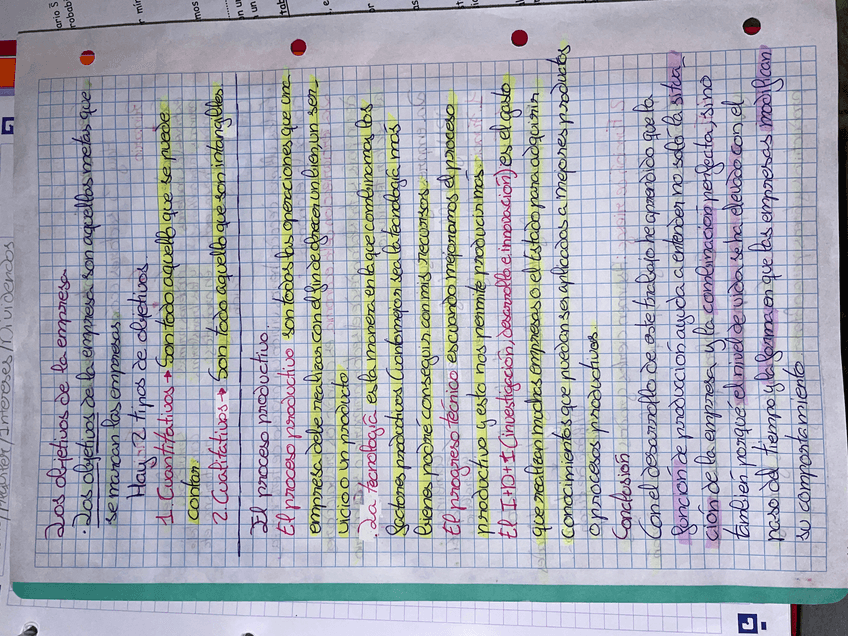 Los objetivos de la empresa
· Los objetivos de la empresa son aquellas metas que
se marcan las empresas.
Hay 2 tipos de objetivos
1. Cuantitativos → Son todo aquello que se puede
contar.
2. Cualitativos → Son todo aquello que son intangibles
El proceso productivo.
El proceso productivo son todas las operaciones que una
empresa debe realizar con el fin de ofrecer un bien, un ser-
vicio o un producto.
· La tecnología es la manera en la que combinamos los
factores productivos. Cuanto mejor sea la tecnología más
bienes podré conseguir con mis recursos.
El progreso técnico es cuando mejoramos el proceso
productivo y esto nos permite producir más.
El I+D+I (investigación, desarrollo e innovación) es el gasto
que realizan muchas empresas o el Estado para adquirir
conocimientos que puedan ser aplicados a mejores productos
o procesos productivos.
Conclusión
Con el desarrollo de este trabajo he aprendido que la
función de producción ayuda a entender no solo la situa-
ción de la empresa y la combinación perfecta, sino
también porque el nivel de vida se ha elevado con el
paso del tiempo y la forma en que las empresas modifican
su comportamiento